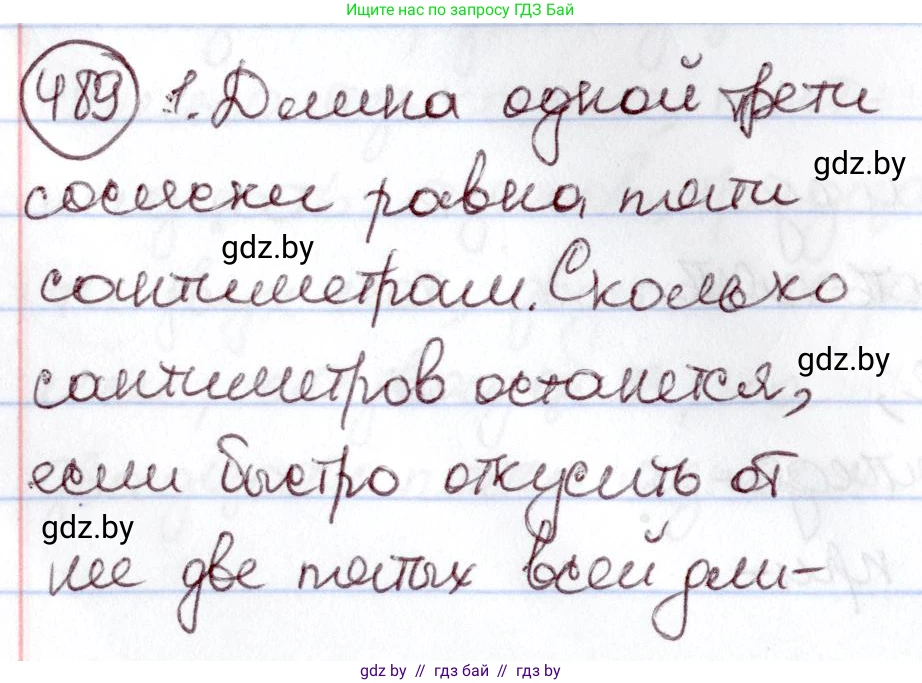 Ищите нас по запросу ГДЗ Бай
489 1. Длина одной трети
gdz.by
сосиски равна пяти
gdz.by
сантиметрам. Сколько
gdz.by
сантиметров останется,
если быстро откусить от
gdz.by
нее две пятых всей дли-
gdz by // гдз бай // gdz by